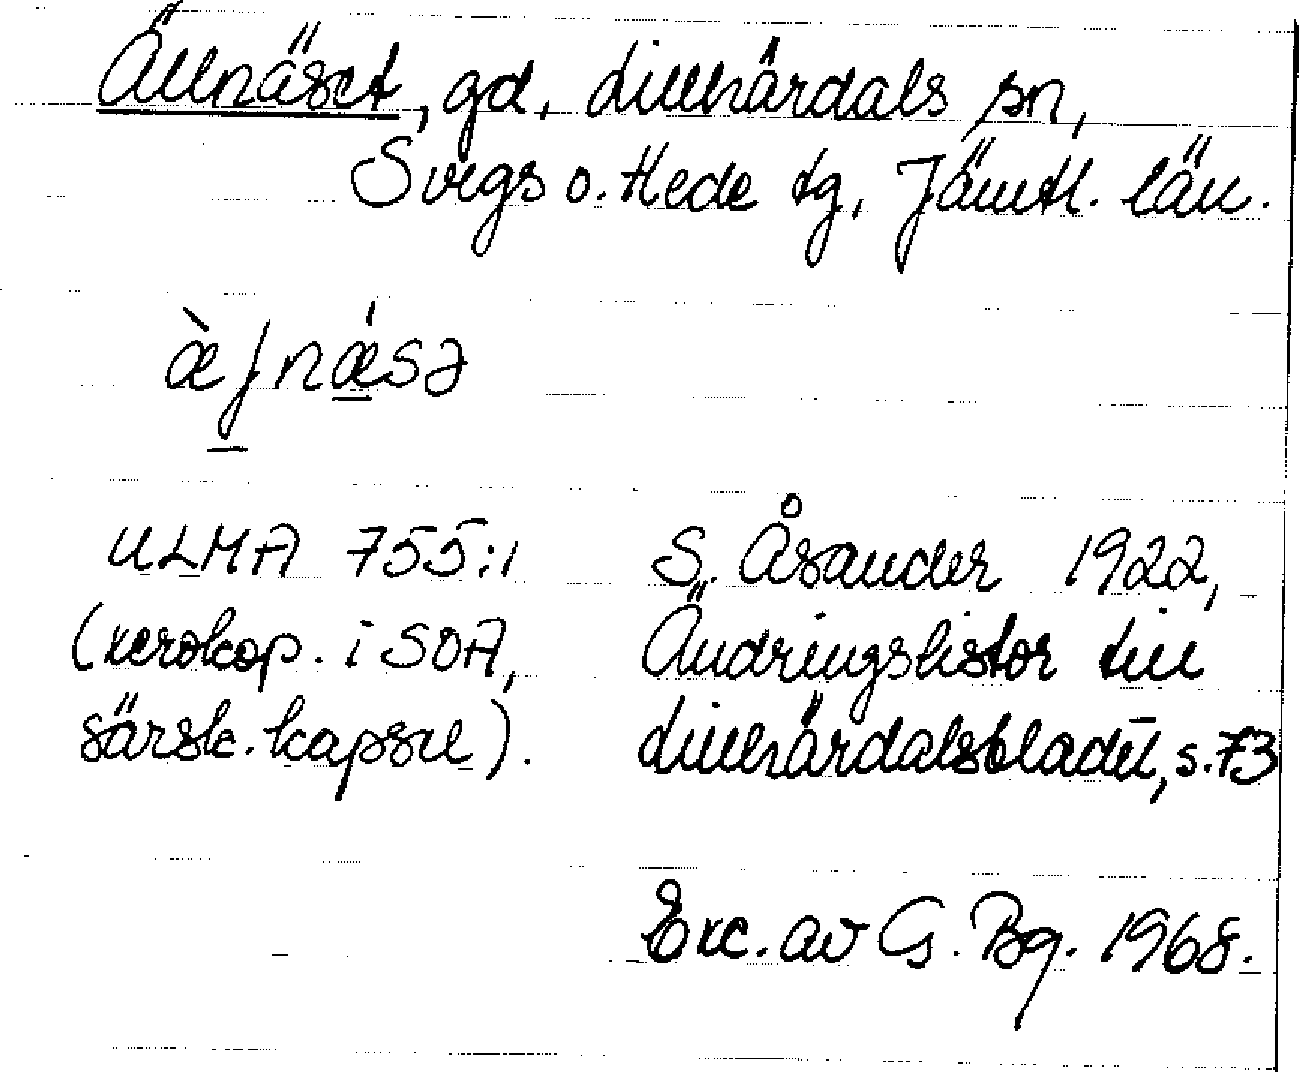 Ällnäset, gd, Lillhärdals sn,
Svegs o. Hede tg, Jämtl. län.
æ̀ʃnǽsə
ULMA 755:1
(xerokop. i SOA,
särsk. kapsel).
S. Åsander 1922,
Ändringslistor till
Lillhärdalsbladet, s. 73
Exc. av G. Bg. 1968.